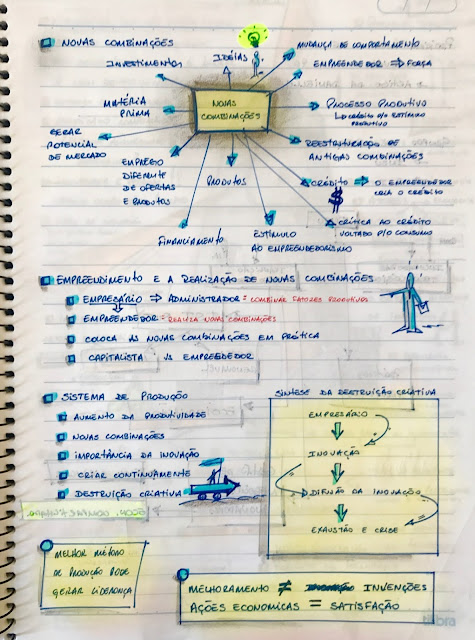 NOVAS COMBINAÇÕES
IDÉIAS
MUDANÇA DE COMPORTAMENTO
INVESTIMENTOS
EMPREENDEDOR ⇒ FORÇA
MATÉRIA
PRIMA
NOVAS
COMBINAÇÕES
PROCESSO PRODUTIVO
CRÉDITO P/O ESTÍMULO
PRODUTIVO
GERAR
POTENCIAL
DE MERCADO
REESTRUTURAÇÃO DE
ANTIGAS COMBINAÇÕES
EMPREGO
DIFERENTE
DE OFERTAS
E PRODUTOS
PRODUTOS
CRÉDITO ⇒ O EMPREENDEDOR
CRIA O CRÉDITO
$
CRÍTICA AO CRÉDITO
VOLTADO P/O CONSUMO
FINANCIAMENTO
ESTÍMULO
AO EMPREENDEDORISMO
EMPREENDIMENTO E A REALIZAÇÃO DE NOVAS COMBINAÇÕES
EMPRESÁRIO ⇒ ADMINISTRADOR = COMBINAR FATORES PRODUTIVOS
EMPREENDEDOR = REALIZA NOVAS COMBINAÇÕES
COLOCA AS NOVAS COMBINAÇÕES EM PRÁTICA
CAPITALISTA VS EMPREEDOR
SISTEMA DE PRODUÇÃO
AUMENTO DA PRODUTIVIDADE
NOVAS COMBINAÇÕES
IMPORTÂNCIA DA INOVAÇÃO
CRIAR CONTINUAMENTE
DESTRUIÇÃO CRIATIVA
SÍNTESE DA DESTRUIÇÃO CRIATIVA
EMPRESÁRIO
INOVAÇÃO
DIFUSÃO DA INOVAÇÃO
EXAUSTÃO E CRISE
MELHOR MÉTODO
DE PRODUÇÃO PODE
GERAR LIDERANÇA
MELHORAMENTO ≠ INVENÇÕES
AÇÕES ECONOMICAS = SATISFAÇÃO